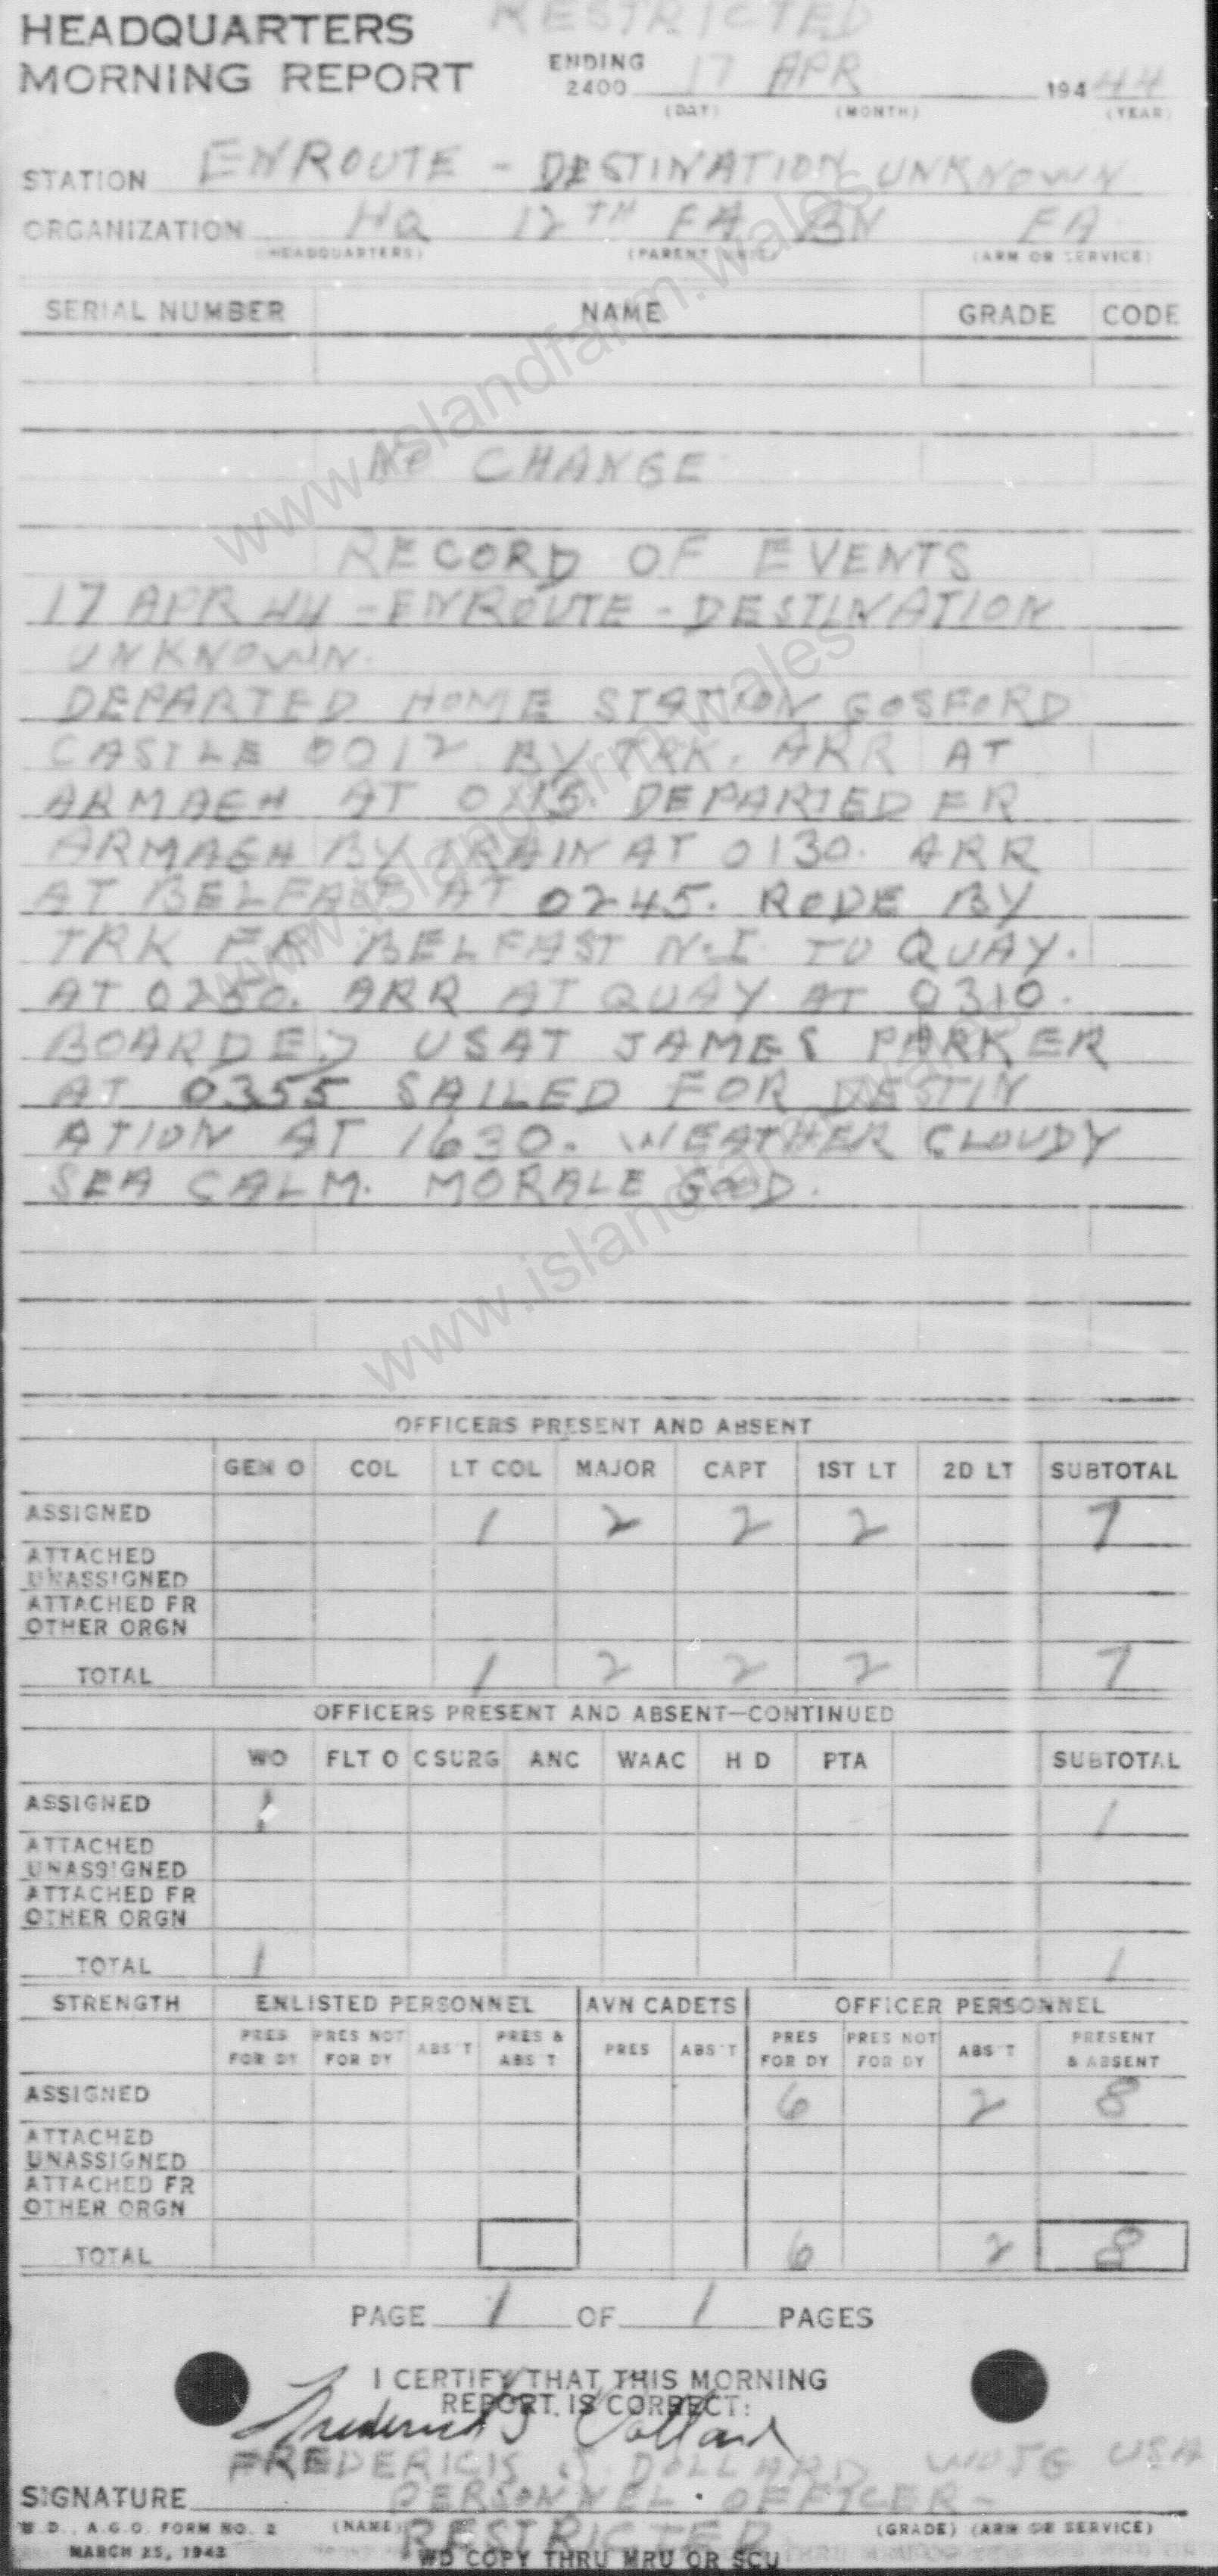 RESTRICTED
HEADQUARTERS
MORNING REPORT
ENDING
2400 17 APR 194 44
(DAY) (MONTH) (YEAR)
STATION ENROUTE - DESTINATION UNKNOWN
ORGANIZATION HQ 12TH FA BN FA
(HEADQUARTERS) (PARENT UNIT) (ARM OR SERVICE)
SERIAL NUMBER NAME GRADE CODE
NO CHANGE
RECORD OF EVENTS
17 APR 44 - ENROUTE - DESTINATION
UNKNOWN.
DEPARTED HOME STATION GOSFORD
CASTLE 0012 BY TRK. ARR AT
ARMAGH AT 0115. DEPARTED FR
ARMAGH BY TRAIN AT 0130. ARR
AT BELFAST AT 0245. RODE BY
TRK FR BELFAST N.I. TO QUAY.
AT 0250. ARR AT QUAY AT 0310.
BOARDED USAT JAMES PARKER
AT 0355 SAILED FOR DESTIN
ATION AT 1630. WEATHER CLOUDY
SEA CALM. MORALE GOOD.
OFFICERS PRESENT AND ABSENT
GEN O COL LT COL MAJOR CAPT 1ST LT 2D LT SUBTOTAL
ASSIGNED 1 2 2 2 7
ATTACHED
UNASSIGNED
ATTACHED FR
OTHER ORGN
TOTAL 1 2 2 2 7
OFFICERS PRESENT AND ABSENT—CONTINUED
WO FLT O CSURG ANC WAAC H D PTA SUBTOTAL
ASSIGNED 1 1
ATTACHED
UNASSIGNED
ATTACHED FR
OTHER ORGN
TOTAL 1 1
STRENGTH ENLISTED PERSONNEL AVN CADETS OFFICER PERSONNEL
PRES FOR DY PRES NOT FOR DY ABS'T PRES & ABS'T PRES ABS'T PRES FOR DY PRES NOT FOR DY ABS'T PRESENT & ABSENT
ASSIGNED 6 2 8
ATTACHED
UNASSIGNED
ATTACHED FR
OTHER ORGN
TOTAL 6 2 8
PAGE 1 OF 1 PAGES
I CERTIFY THAT THIS MORNING
REPORT IS CORRECT:
Frederick S Dollard
FREDERICK S DOLLARD WOJG USA
SIGNATURE PERSONNEL OFFICER -
W. D., A. G. O. FORM NO. 2 (NAME) RESTRICTED (GRADE) (ARM OR SERVICE)
MARCH 25, 1943
WD COPY THRU MRU OR SCU
www.islandfarm.wales
www.islandfarm.wales
www.islandfarm.wales